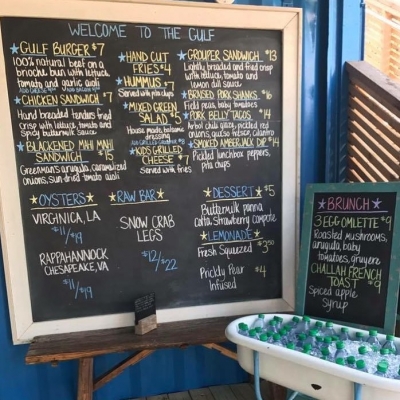 WELCOME TO THE GULF
GULF BURGER $7
100% natural beef on a
brioche bun with lettuce,
tomato and garlic aioli
ADD CHEESE $1 ADD BACON $2
CHICKEN SANDWICH $7
Hand breaded tenders fried
crisp with lettuce, tomato and
spicy buttermilk sauce
BLACKENED MAHI MAHI
SANDWICH $15
arugula, caramelized
onions, sun-dried tomato aioli
HAND CUT
FRIES $4
HUMMUS $7
Served with pita chips
MIXED GREEN
SALAD $5
House made balsamic
dressing
ADD GRILLED CHICKEN
KIDS GRILLED
CHEESE $7
Served with fries
GROUPER SANDWICH $13
Lightly breaded and fried crisp
with lettuce, tomato and
lemon dill sauce
BRAISED PORK SHANKS $16
Field peas, baby tomatoes
PORK BELLY TACOS $14
Arbol chili glaze, pickled red
onions, queso fresco, cilantro
SMOKED AMBERJACK DIP $14
Pickled lunchbox peppers,
pita chips
OYSTERS
VIRGINICA, LA
$11/$19
RAPPAHANNOCK
CHESAPEAKE, VA
$11/$19
RAW BAR
SNOW CRAB
LEGS
$12/$22
DESSERT $5
Buttermilk panna
cotta, strawberry compote
LEMONADE
Fresh Squeezed $3.50
Prickly Pear $4
Infused
BRUNCH
3 EGG OMLETTE $9
Roasted mushrooms,
arugula, baby
tomatoes, gruyere
CHALLAH FRENCH
TOAST $9
Spiced apple
syrup